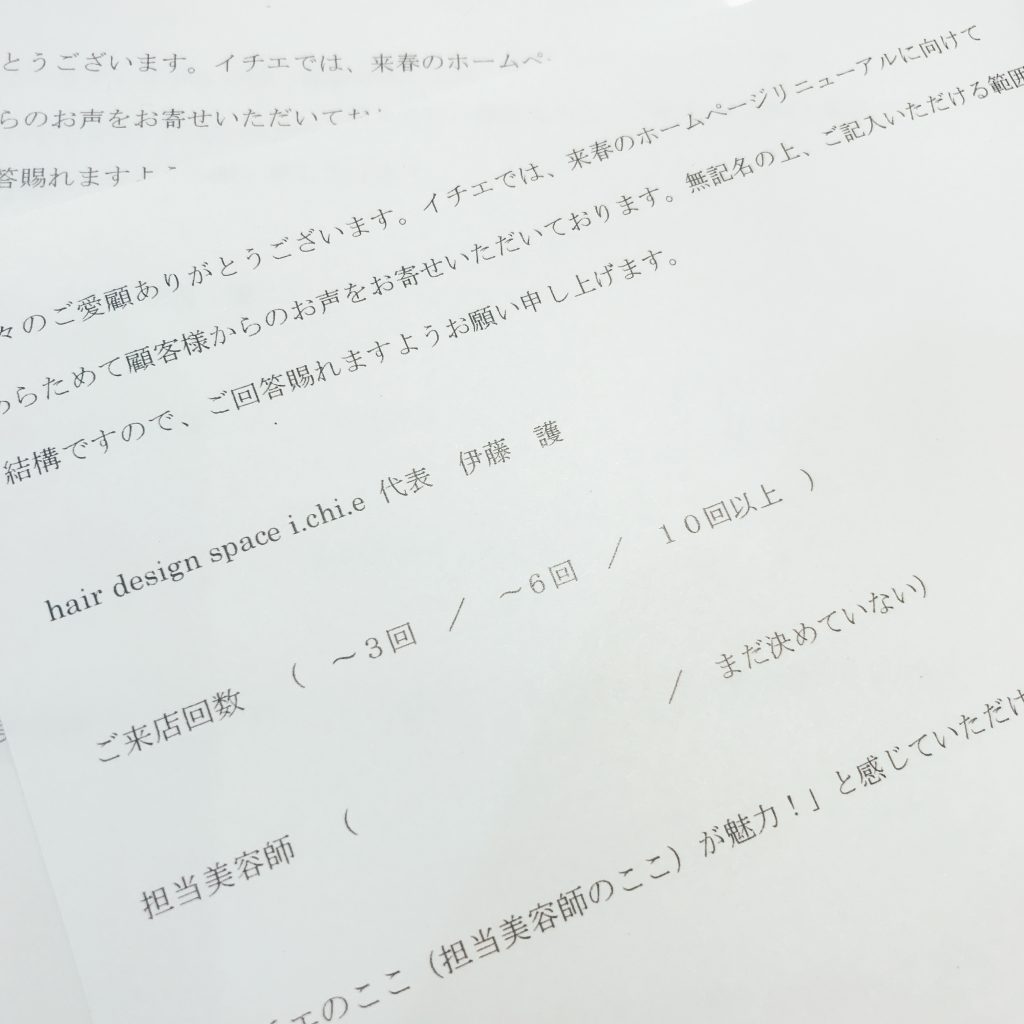 とうございます。イチエでは、来春のホームペ
らのお声をお寄せいただいてお
答賜れますよう
々のご愛顧ありがとうございます。イチエでは、来春のホームページリニューアルに向けて
あらためて顧客様からのお声をお寄せいただいております。無記名の上、ご記入いただける範囲
結構ですので、ご回答賜れますようお願い申し上げます。
hair design space i.chi.e 代表　伊藤　護
ご来店回数　（　～３回　／　～６回　／　１０回以上　）
担当美容師　（　　／　まだ決めていない）
チエのここ（担当美容師のここ）が魅力！」と感じていただけ